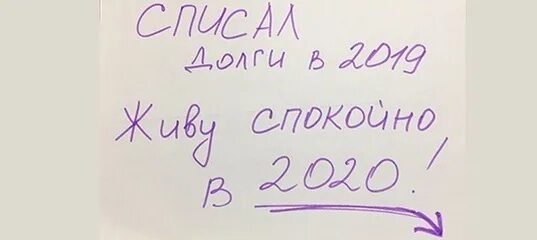 СПИСАЛ
ДОЛГИ В 2019
ЖИВУ СПОКОЙНО
В 2020!